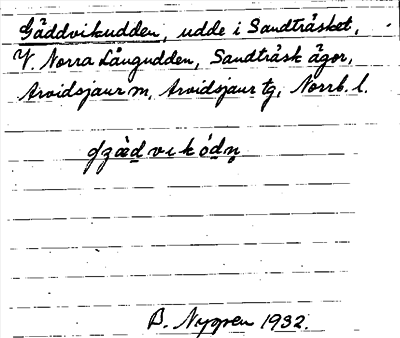 Gäddvikudden, udde i Sandträsket,
V. Norra Långudden, Sandträsk ägor,
Arvidsjaur m, Arvidsjaur tg, Norrb. l.
B. Nygren 1932.